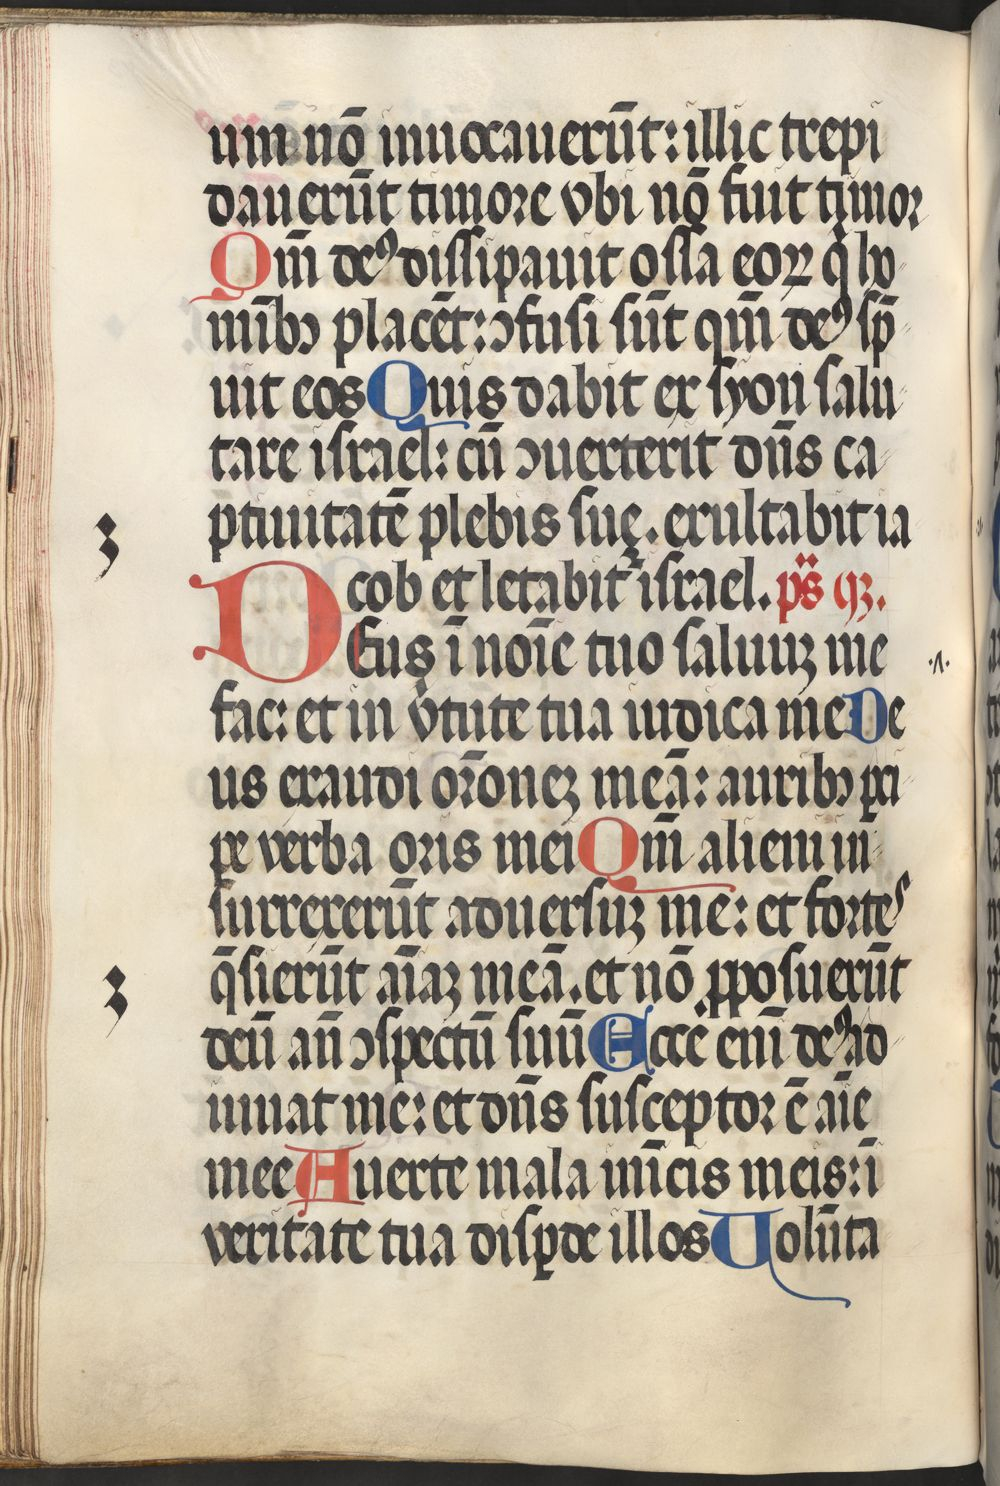 um nō inuocauerūt: illic trepi
dauerūt timore vbi nō fuit timor
Qm̄ deꝰ dissipauit ossa eoꝝ q̇ ho
mībꝫ placēt: ↄfusi sūt qm̄ deꝰ sp̄
uit eos Quis dabit ex syon salu
tare israel: cū ↄuerterit dn̄s ca
ptiuitatē plebis sue. exultabit ia
cob et letabit᷑ israel. p̄s
Deus ī noīe tuo saluuꝫ me
fac: et in v̓tute tua iudica me De
us exaudi or̄oneꝫ meā: auribꝫ ꝑci
pe verba oris mei Qm̄ alieni in
surrexerūt aduersuꝫ me: et fortes
q̄sierūt aīaꝫ meā. et nō ꝓposuerūt
deū an̄ ↄspectū suū Ecce eni̅ deꝰ ad
iuuat me: et dn̄s susceptor ē aīe
mee Auerte mala inīcis meis: ī
veritate tua disꝑde illos Uolūta